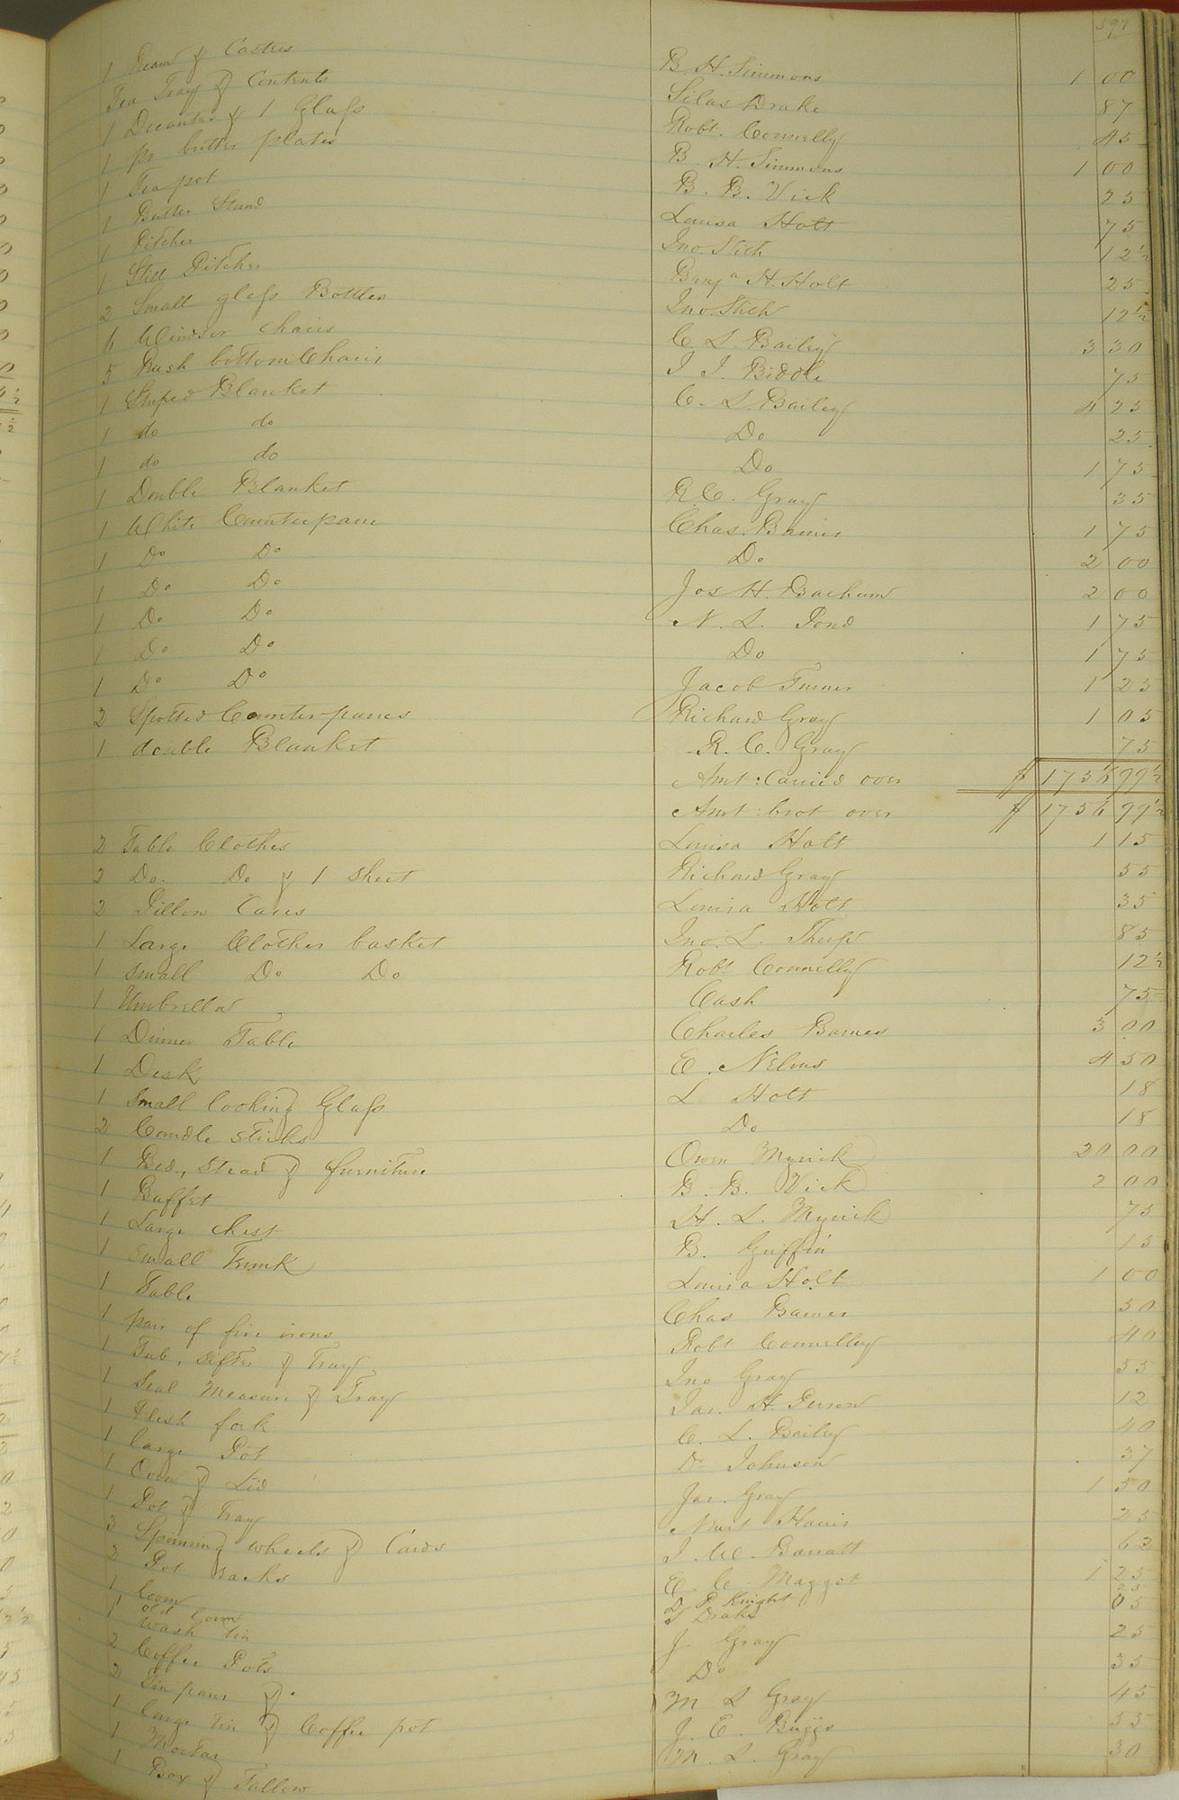 597
1 & Castus B. H. Simmons 1 00
Tea Tray & Contents Silas Drake 87
1 Decanter & 1 Glass Robt. Connelly 45
1 pr butter plates B. H. Simmons 1 00
1 Tea pot B. B. Vick 25
1 Butter Stand Louisa Holt 75
1 Pitcher Jno Stith 12½
1 Still Pitcher Benja H. Holt 25
2 Small glass Bottles Jno Stith 12½
6 Windsor Chairs C. L. Bailey 3 30
5 Rush bottom Chairs J. J. Biddle 75
1 Striped Blanket C. L. Bailey 4 25
1 do do Do 25
1 do do Do 1 75
1 Double Blanket R. C. Gray 35
1 White Counterpane Chas. Barnes 1 75
1 Do Do Do 2 00
1 Do Do Jos H. Barham 2 00
1 Do Do N. L. Pond 1 75
1 Do Do Do 1 75
1 Do Do Jacob Turner 1 25
2 Spotted Counterpanes Richard Gray 1 05
1 double Blanket R. C. Gray 75
Amt: Carried over $ 1756 99½
Amt: brot over $ 1756 99½
2 Table Clothes Louisa Holt 1 15
2 Do. Do & 1 Sheet Richard Gray 55
2 Pillow Cases Louisa Holt 35
1 Large Clothes basket Jno. L. Tharp 85
1 small Do Do Robt Connelly 12½
1 Umbrella Cash 75
1 Dinner Table Charles Barnes 3 00
1 Desk E. Nelms 4 50
1 small looking Glass L Holt 18
2 Candle sticks Do 18
1 Bed, stead & furniture Owen Myrick 20 00
1 Buffet B. B. Vick 2 00
1 Large chest H. L. Myrick 75
1 Small Trunk B. Griffin 15
1 Table Louisa Holt 1 00
1 pair of fire irons Chas Barnes 50
1 Tub, sifter & Tray Robt Connelley 40
1 Seal Measure & Tray Jno Gray 55
1 Flesh fork Jas. H. Person 12
1 large Pot C. L. Bailey 40
1 Oven & Lid Do Johnson 37
1 Pot & Tray Jas. Gray 1 50
3 Spinning wheels & Cards Harris 25
2 Pot racks J. W. Barratt 62
1 Loom E. C. Magget 1 25
1 old Loom D. P. Knight 25
Wash tin T Drake 05
2 Coffee Pots J Gray 25
2 Tin pans & Do 35
1 large tin & Coffee pot M L Gray 45
1 Mortar J. E. Briggs 55
1 Box & Tallow M. L. Gray 30